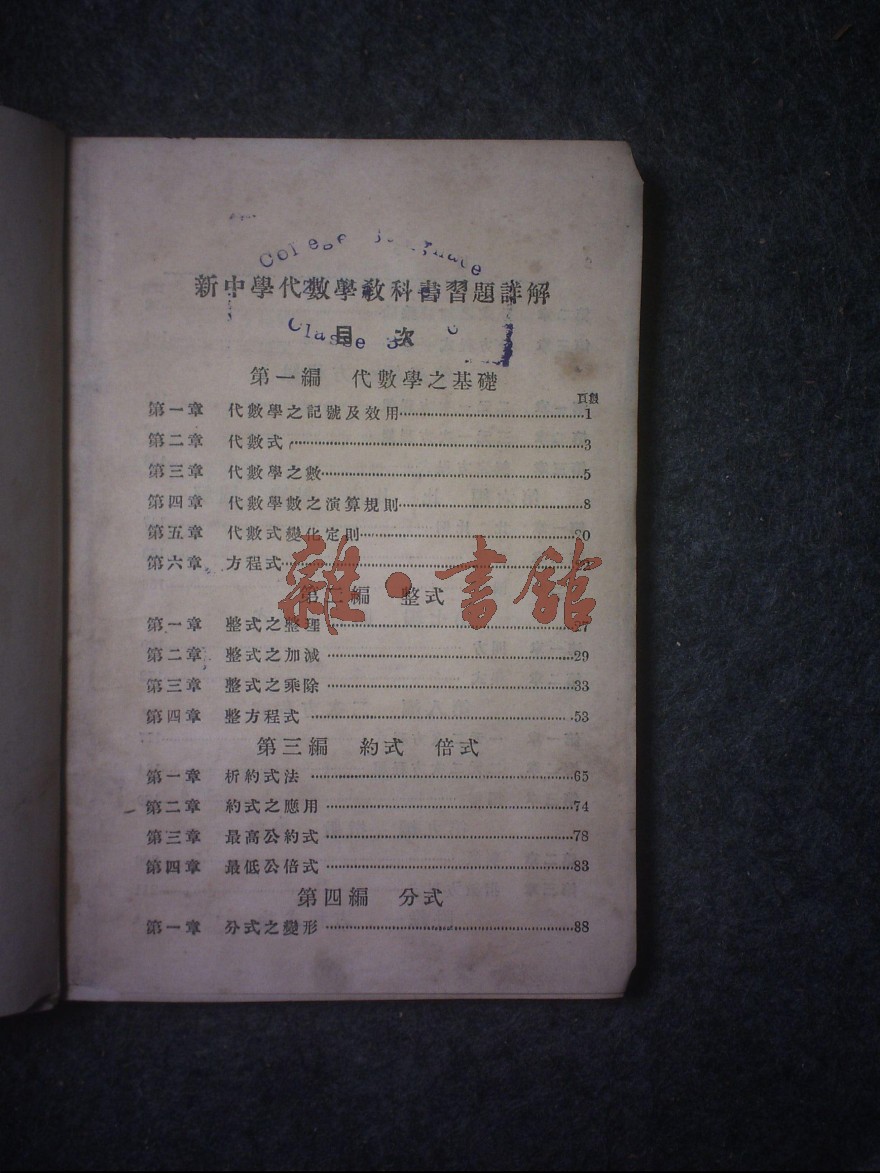 新中學代數學教科書習題詳解
目次
第一編 代數學之基礎
頁數
第一章 代數學之記號及效用……1
第二章 代數式……3
第三章 代數學之數……5
第四章 代數學數之演算規則……8
第五章 代數式變化定則……20
第六章 方程式……22
第二編 整式
雜·書館
第一章 整式之整理……27
第二章 整式之加減……29
第三章 整式之乘除……33
第四章 整方程式……53
第三編 約式 倍式
第一章 析約式法……65
第二章 約式之應用……74
第三章 最高公約式……78
第四章 最低公倍式……83
第四編 分式
第一章 分式之變形……88